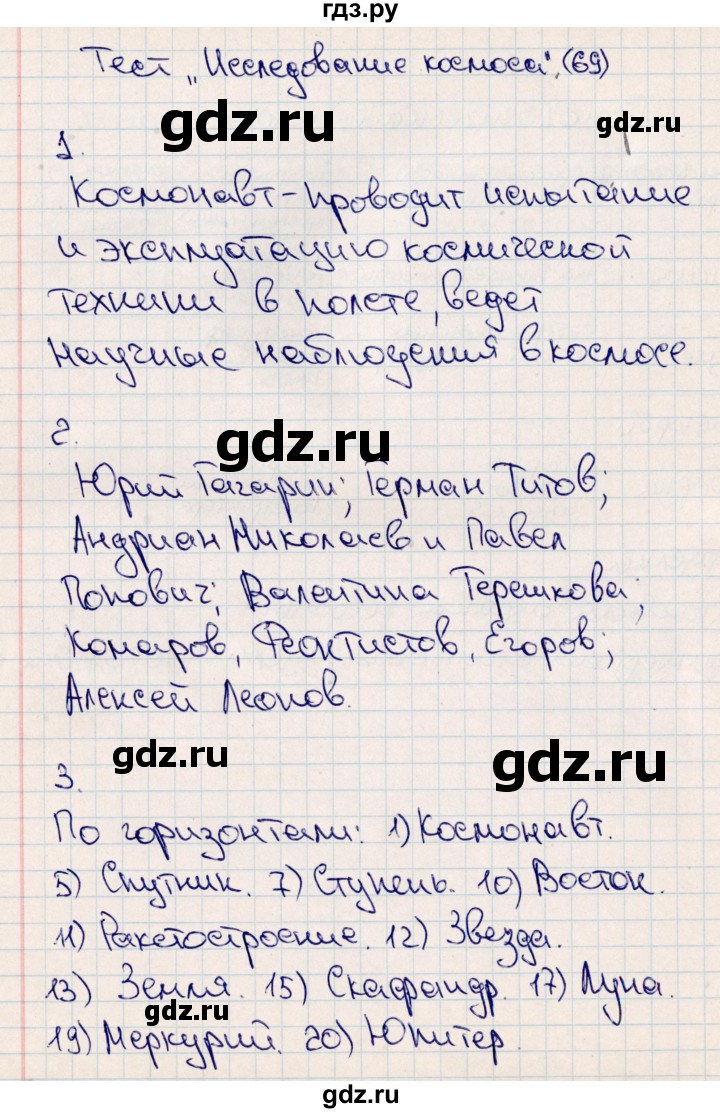 гдз.ру
Тест „Исследование космоса“, (69)
gdz.ru
gdz.ru
1.
Космонавт - проводит испытание
и эксплуатацию космической
техники в полете, ведет
научные наблюдения в космосе.
2.
gdz.ru
Юрий Гагарин; Герман Титов;
Андриан Николаев и Павел
Попович; Валентина Терешкова;
Комаров, Феоктистов, Егоров;
Алексей Леонов.
gdz.ru
gdz.ru
3.
По горизонтали: 1) Космонавт.
5) Спутник. 7) Ступень. 10) Восток.
11) Ракетостроение. 12) Звезда.
13) Земля. 15) Скафандр. 17) Луна.
gdz.ru
19) Меркурий. 20) Юпитер.
gdz.ru